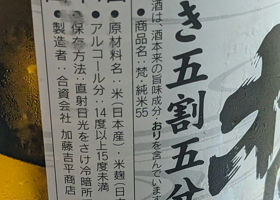 き五割五分
酒は、酒本来の旨味成分、おりを含んでいます
商品名：梵・純米55
・原材料名：米（日本産）・米麹（日
・アルコール分：14度以上15度未満
・保存方法：直射日光をさけ冷暗所
・製造者：合資会社 加藤吉平商店